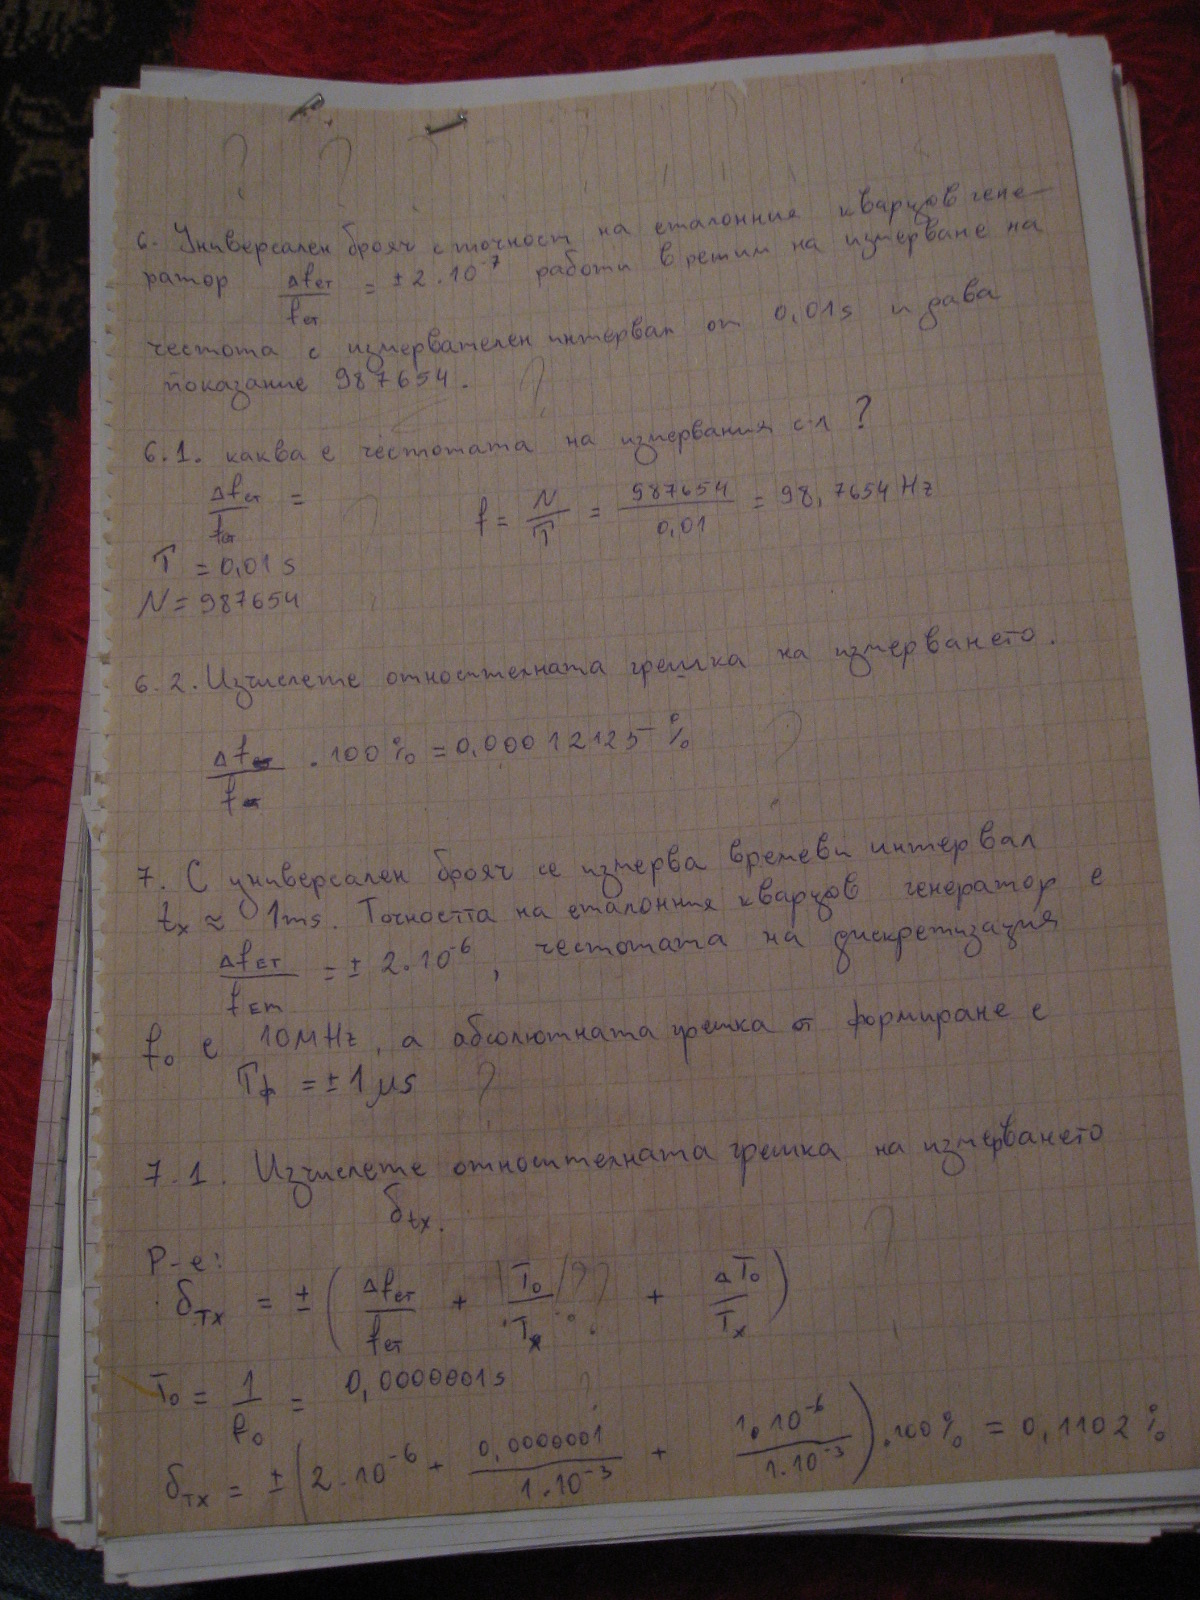 ? ?
6. Универсален брояч с точност на еталонния кварцов гене-
ратор Δfет/fет = ±2.10⁻⁷ работи в режим на измерване на
честота с измервателен интервал от 0,01s и дава
показание 987654.
6.1. каква е честотата на измервания с-л ?
Δfет/fет =
f = N/T = 987654/0,01 = 98,7654 Hz
T = 0,01 s
N = 987654
6.2. Изчислете относителната грешка на измерването.
Δf/f . 100% = 0,00012125 %
7. С универсален брояч се измерва времеви интервал
tx ≈ 1ms. Точността на еталонния кварцов генератор е
Δfет/fет = ± 2.10⁻⁶, честотата на дискретизация
f₀ е 10MHz, а абсолютната грешка от формиране е
Tф = ±1μs ?
7.1. Изчислете относителната грешка на измерването
δtx.
Р-е:
δTx = ± (Δfет/fет + T₀/Tx ?? + ΔT₀/Tx)
T₀ = 1/f₀ = 0,0000001s
δTx = ± (2.10⁻⁶ + 0,0000001/1.10⁻³ + 1.10⁻⁶/1.10⁻³).100% = 0,1102 %